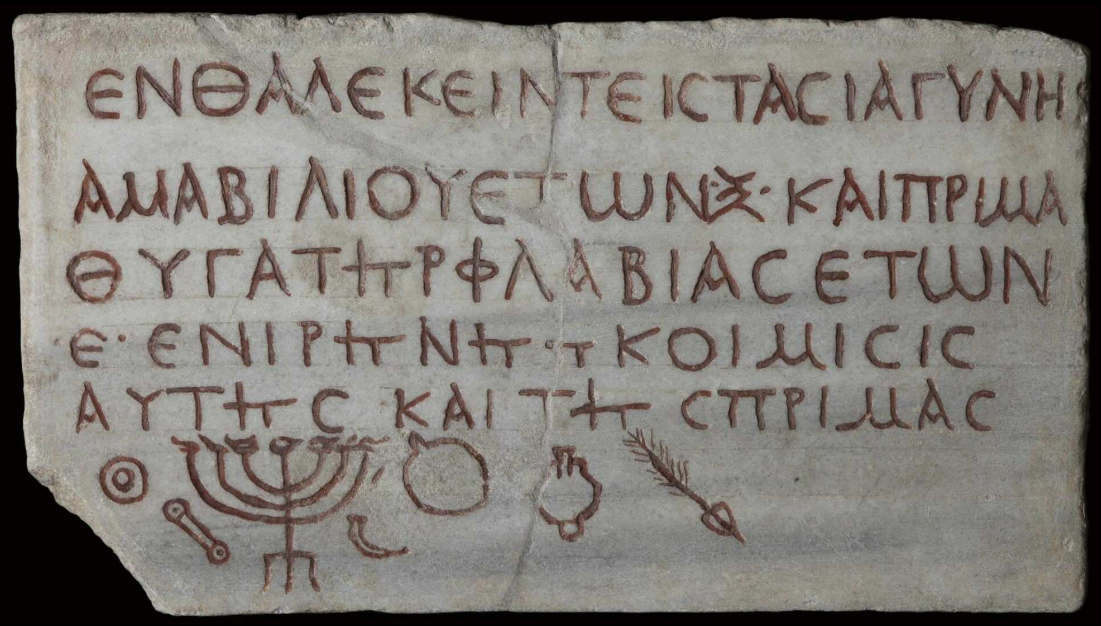 ΕΝΘΑΛΕΚΕΙΝΤΕΙϹΤΑϹΙΑΓΥΝΗ
ΑΜΑΒΙΛΙΟΥΕΤΩΝ·Ξ·ΚΑΙΠΡΙΜΑ
ΘΥΓΑΤΗΡΦΛΑΒΙΑϹΕΤΩΝ
·Ε·ΕΝΙΡΗΝΗ·Η ΚΟΙΜΙϹΙϹ
ΑΥΤΗϹ ΚΑΙ ΤΗϹΠΡΙΜΑϹ